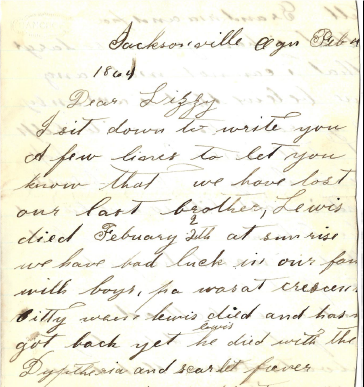 Jacksonville Ogn Feb
1864
Dear Lizzy
I sit down to write you
A few lines to let you
know that we have lost
our last brother, Lewis
died Febuary at sunrise
we have bad luck in our fam
with boys, pa was at crescen
Citty when lewis died and has n
got back yet lewis he died with the
Dyptheria and scarlet feever